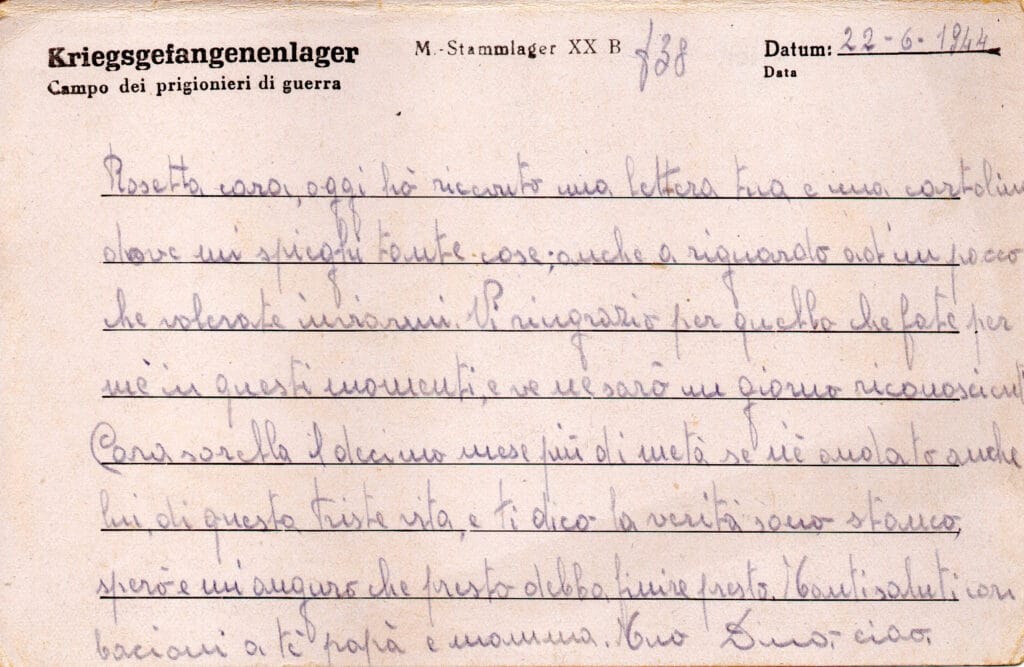 Kriegsgefangenenlager
Campo dei prigionieri di guerra
M.-Stammlager XX B
f 38
Datum: 22-6-1944
Data
Rosetta cara, oggi hò ricevuto una lettera tua e una cartolina
dove mi spieghi tante cose; anche a riguardo ad'un pacco
che volevate inviarmi. Vi ringrazio per quello che fate per
mè in questi momenti, e ve ne sarò un giorno riconoscente
Cara sorella il decimo mese più di metà se n'è andato anche
lui, di questa triste vita, e ti dico la verità sono stanco,
spero e mi auguro che presto debba finire presto. Tanti saluti con
bacioni a tè papà e mamma. Tuo Dino ciao.